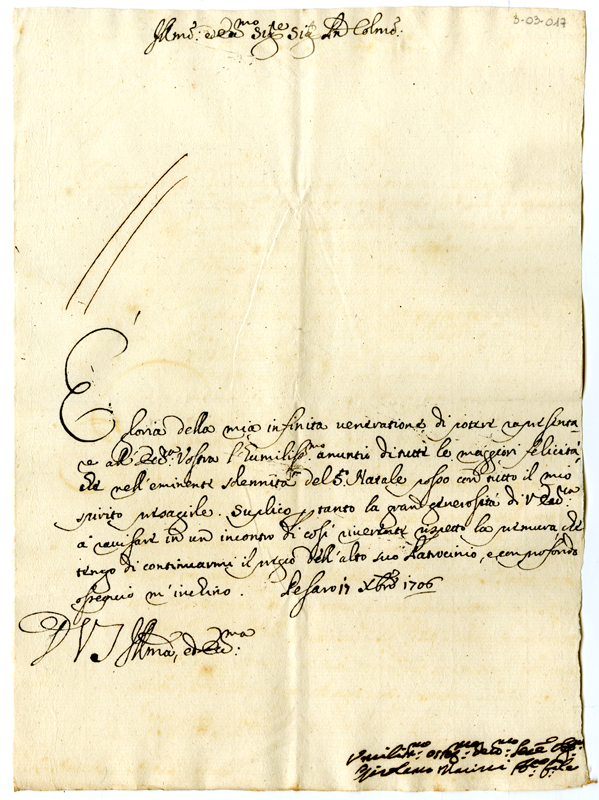 3-03-017
Illmo: ed Ecc:mo Sig:re Sig: Pn Colmo:
È gloria della mia infinita veneratione di potere rapresenta
re all'Ecc:za Vostra l'humiliss:mo anuntio di tutte le maggiori felicità,
che nell'eminente solennità del S. Natale posso con tutto il mio
spirito presagile. Suplico p tanto la grand generosità di V Ecc:za
a ravisare in un incontro di così riverente rispetto la premura che
tengo di continuarmi il pregio dell'alto suo Patrocinio, e con profondo
ossequio m'inchino. Pesaro 17 Xbre 1706
D V S Illma, ed Ecc:ma
Humiliss:mo Devo:mo
Girolamo